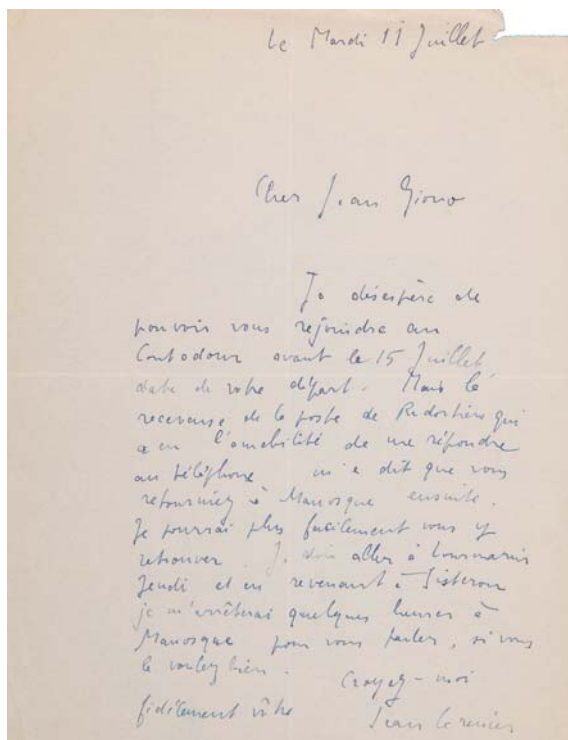 Le Mardi 11 Juillet
Cher Jean Giono
Je désespère de
pouvoir vous rejoindre au
Contadour avant le 15 Juillet,
date de votre départ. Mais la
receveuse de la poste de Redortiers qui
a eu l'amabilité de me répondre
au téléphone m'a dit que vous
retourniez à Manosque ensuite.
Je pourrai plus facilement vous y
retrouver. Je dois aller à Lourmarin
Jeudi et en revenant à Sisteron
je m'arrêterai quelques heures à
Manosque pour vous parler, si vous
le voulez bien.
Croyez-moi
fidèlement vôtre
Jean Grenier